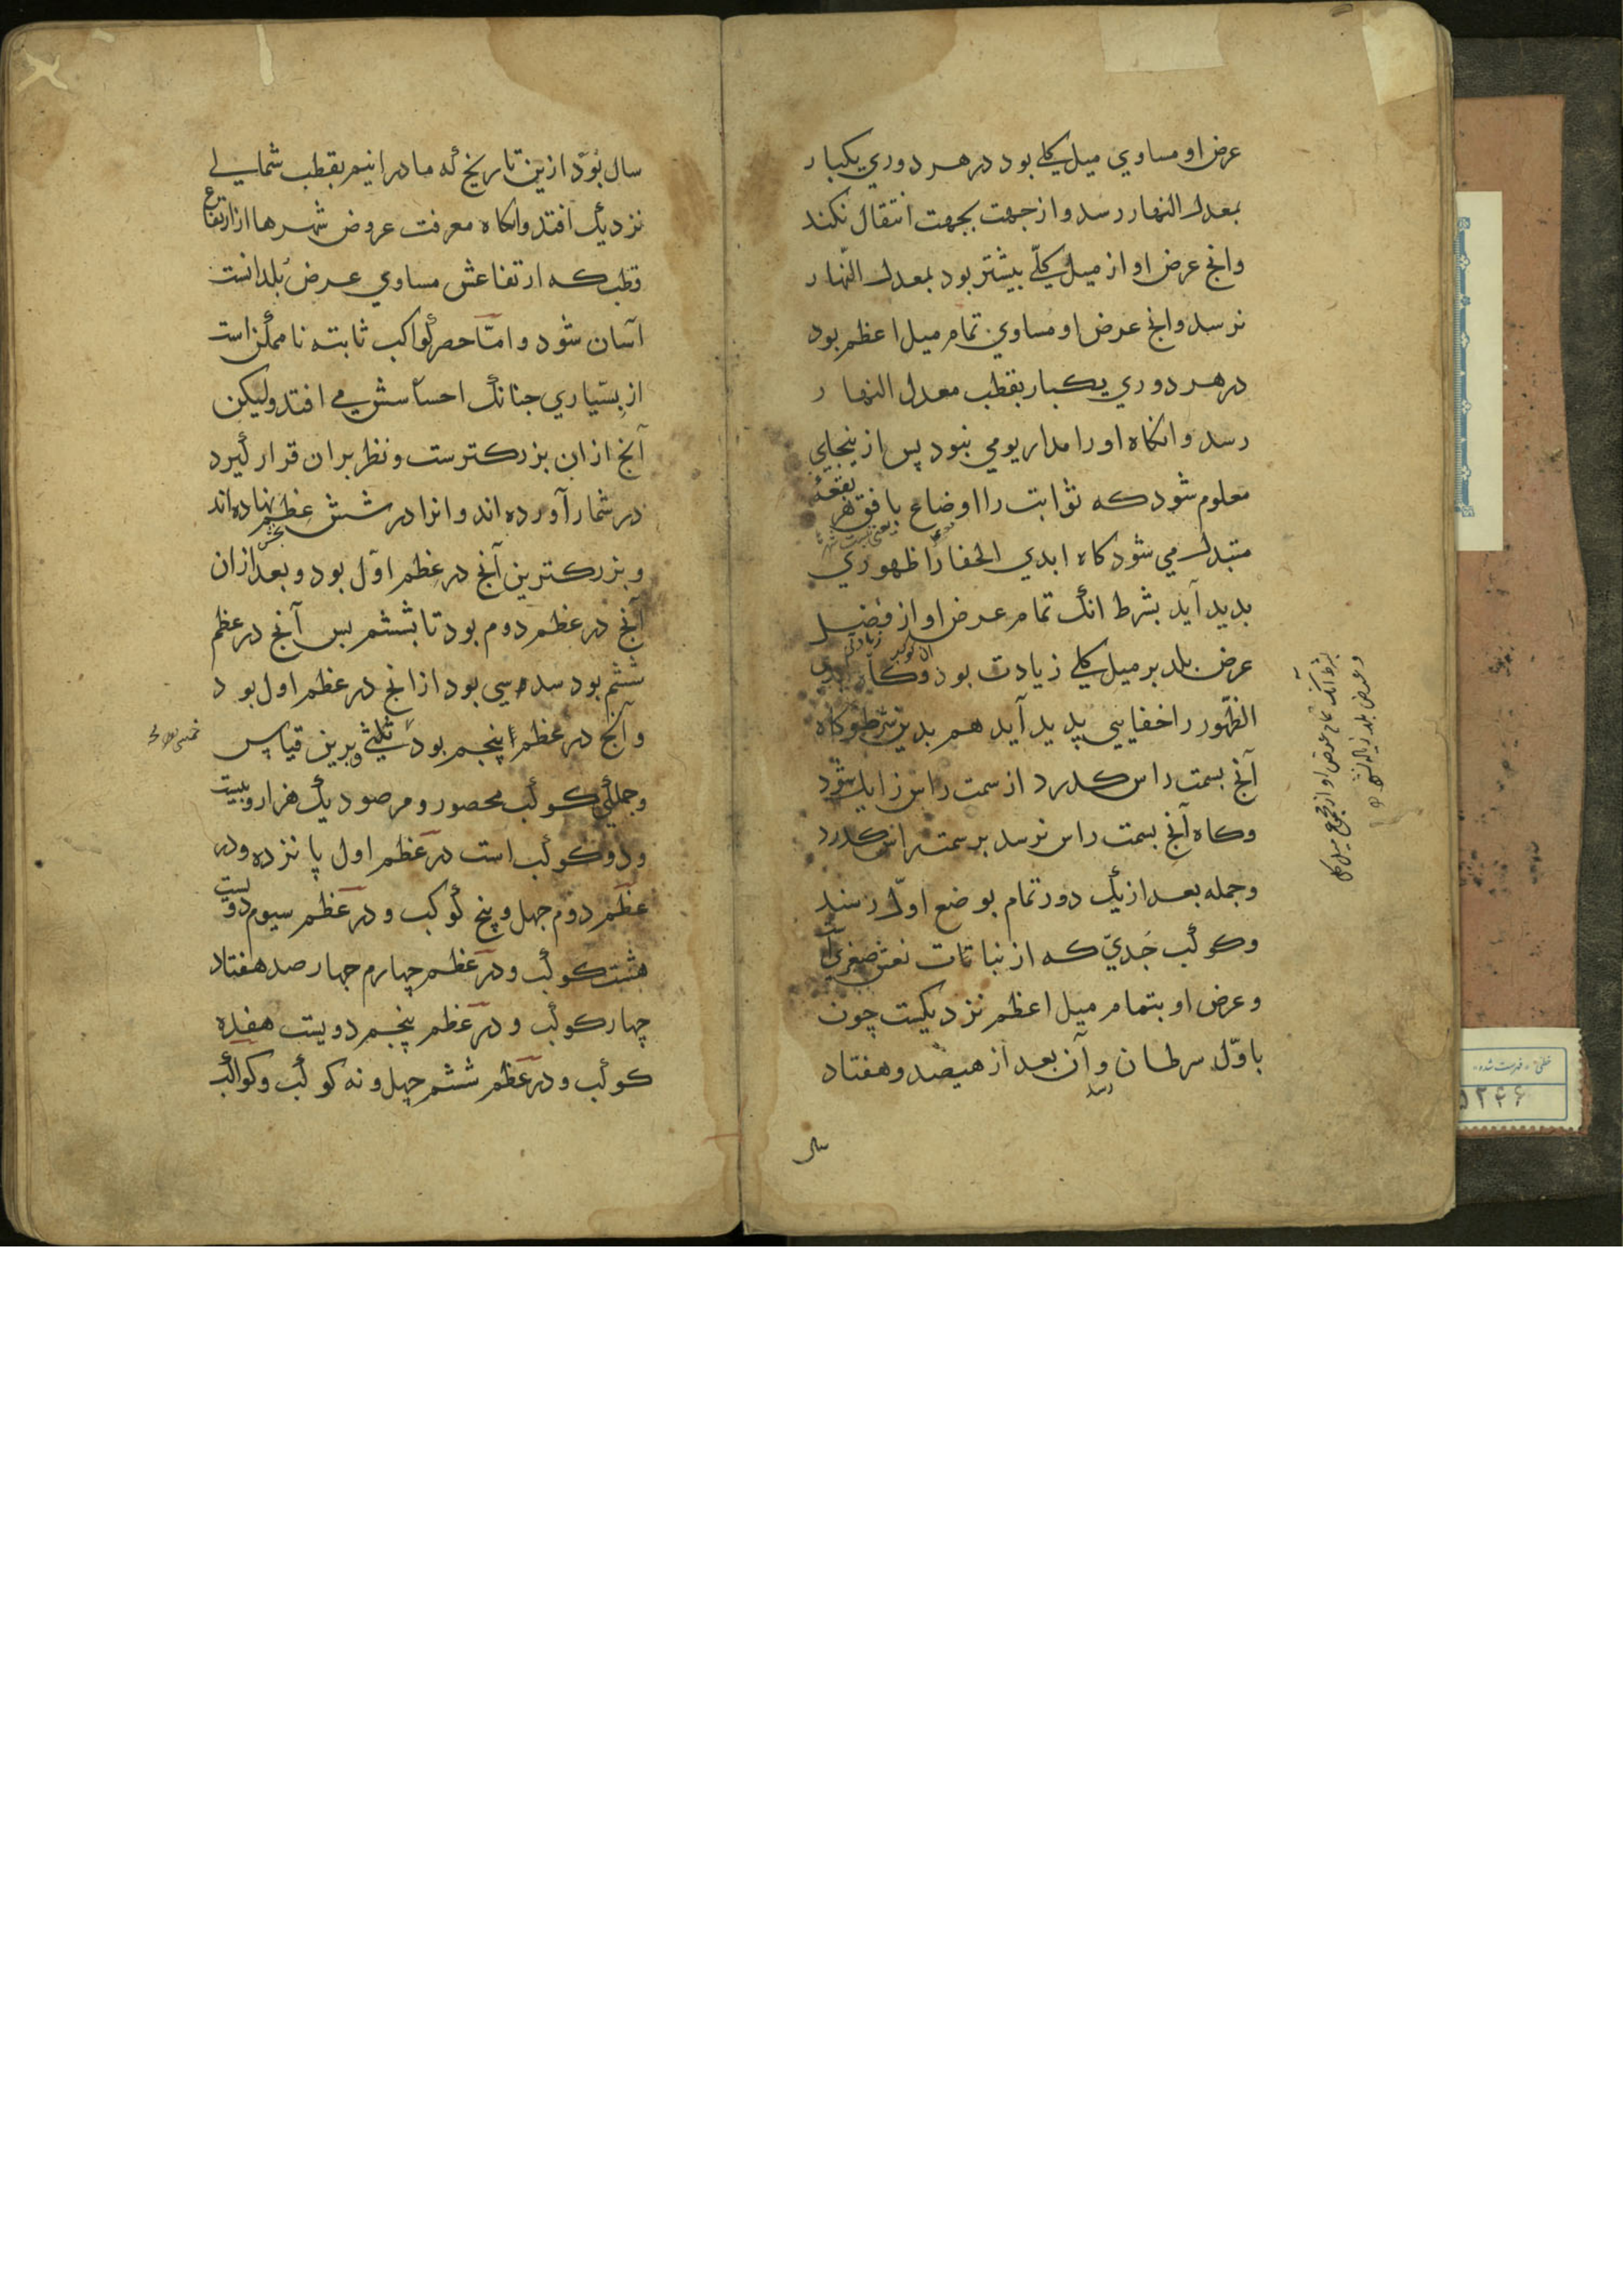 عرض او مساوي ميل كلي بود در هر دوري يكبار
بمعدل النهار رسد و از جهت بجهت انتقال نكند
وانچ عرض او از ميل كلّي بيشتر بود بمعدل النّهار
نرسد وانچ عرض او مساوي تمام ميل اعظم بود
در هر دوري يكبار بقطب معدل النهار
رسد و انكاه او را مدار يومي نبود پس ازينجاي
معلوم شود كه ثوابت را اوضاع با فق هر بقعۀ
متبدل مي شود كاه ابدي الخفا را ظهوري
بديد آيد بشرط انك تمام عرض او از فضل
عرض بلد بر ميل كلي زيادت بود وكاه ابدي
الظّهور را خفايي پديد آيد هم بدين شرط وكاه
آنچ بسمت راس كدرد از سمت راس زايل شود
وكاه آنچ بسمت راس نرسد بر سمت راس كدرد
وجمله بعد از يك دور تمام بوضع اوّل رسند
وكوكب جَديّ كه از بنات نعش صغري است
وعرض او بتمام ميل اعظم نزديكست چون
باوّل سرطان رسد وآن بعد از هيصد وهفتاد
سال
بشرط آنك تمام عرض او از مجموع ميل كلي
وعرض بلد زياده
سال بُوَد ازين تاريخ كه ما درانيم بقطب شمالي
نزديك افتد وانكاه معرفت عروض شهرها از ارتفاع
قطب كه ارتفاعش مساوي عرض بلد انست
آسان شود و امّا حصر كواكب ثابته ناممكن است
از بسياري جنانك احساسش مي افتد وليكن
آنچ ازان بزركترست ونظر بران قرار كيرد
در شمار آورده اند و انرا در شش عِظَم نهاده اند
و بزركترين آنچ در عظم اوّل بود و بعد ازان
آنچ در عظم دوم بود تا بششم پس آنچ در عظم
ششم بود سدسي بود از انچ در عظم اول بود
و آنچ در عظم پنجم بود ثلثي و برين قياس
وجملۀ كوكب محصور و مرصود يك هزار وبيست
و دو كوكب است در عظم اول پانزده ودر
عظم دوم جهل وپنج كوكب و در عظم سيوم دويست
هشت كوكب و در عظم چهارم جهارصد هفتاد
چهار كوكب و در عظم پنجم دويست هفده
كوكب و در عظم ششم چهل و نه كوكب وكواكب
خطى « فهرست شده »
۵۲۴۶